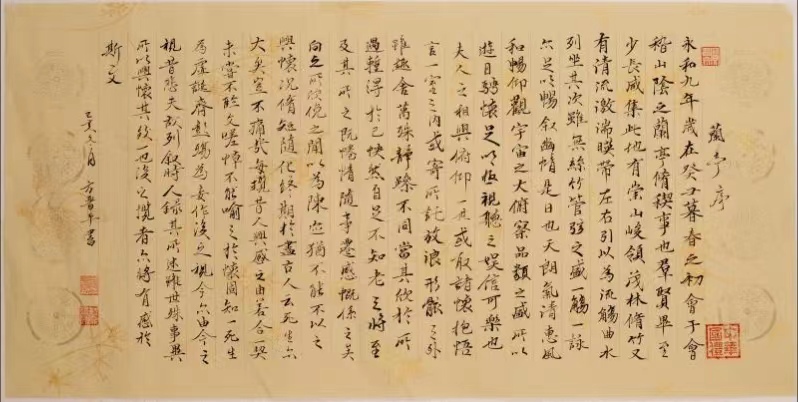 蘭亭序
永和九年歲在癸丑暮春之初會于會
稽山陰之蘭亭脩稧事也羣賢畢至
少長咸集此地有崇山峻領茂林脩竹又
有清流激湍暎帶左右引以為流觴曲水
列坐其次雖無絲竹管弦之盛一觴一詠
亦足以暢叙幽情是日也天朗氣清惠風
和暢仰觀宇宙之大俯察品類之盛所以
遊目騁懷足以極視聽之娛信可樂也
夫人之相與俯仰一世或取諸懷抱悟
言一室之內或寄所託放浪形骸之外
雖趣舍萬殊靜躁不同當其欣於所
遇得於己快然自足不知老之將至
及其所之既惓情隨事遷感慨係之矣
向之所欣俛之間以為陳迹猶不能不以之
興懷況脩短隨化終期於盡古人云死生亦
大矣豈不痛哉每攬昔人興感之由若合一契
未嘗不臨文嗟悼不能喻之於懷固知一死生
為虛誕齊彭殤為妄作後之視今亦由今之
視昔悲夫故列叙時人錄其所述雖世殊事異
所以興懷其致一也後之攬者亦將有感於
斯文